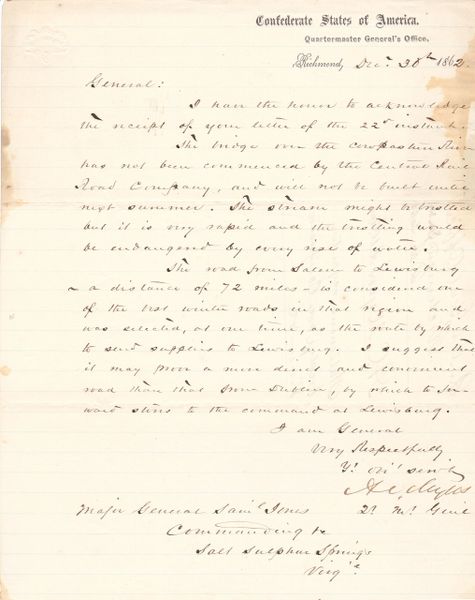 Confederate States of America.
Quartermaster General's Office.
Richmond, Decr 30th 1862.
General:
I have the honor to acknowledge
the receipt of your letter of the 22d instant.
The bridge over the Cowpasture River
has not been commenced by the Central Rail
Road Company, and will not be built until
next summer. The stream might be trestled
but it is very rapid and the trestling would
be endangered by every rise of water.
The road from Salem to Lewisburg
- a distance of 72 miles - is considered one
of the best winter roads in that region and
was selected, at one time, as the route by which
to send supplies to Lewisburg. I suggest that
it may prove a more direct and convenient
road than that from Dublin, by which to for-
ward stores to the command at Lewisburg.
I am General
Very Respectfully
Yr obt servt
A C Myers
Qr Mr Genl
Major General Saml Jones
Commanding &c
Salt Sulphur Springs
Virga